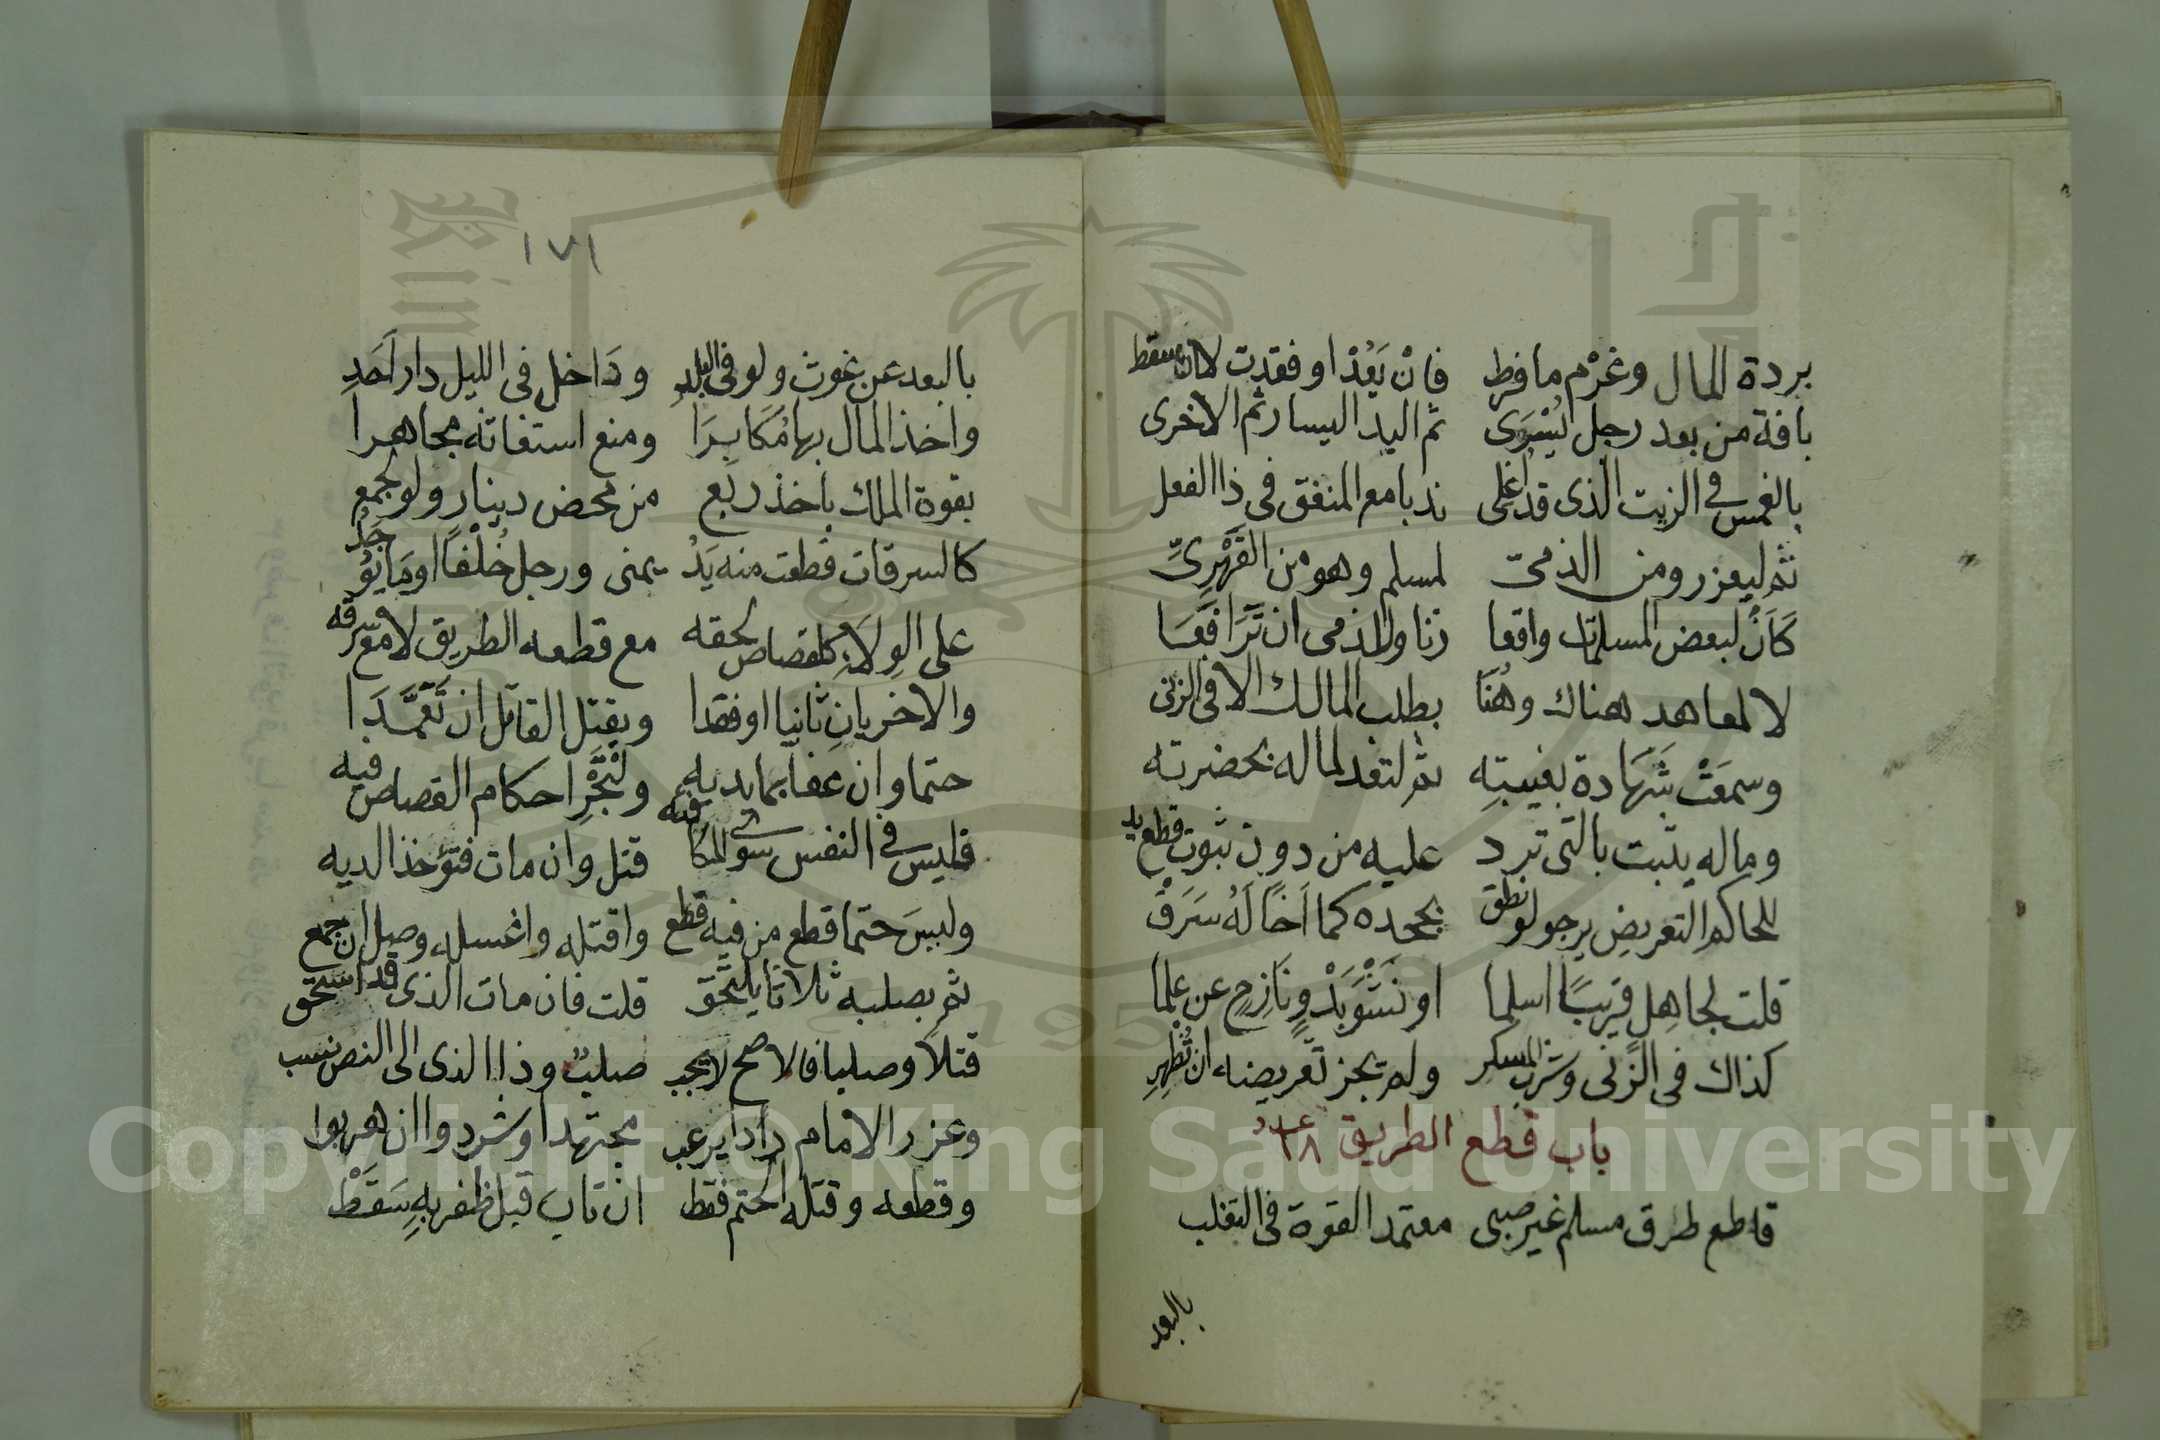 بردة المال وغرم ما فرط فان يعد او فقدت لا ان سقط
بافة من بعد رجل يسرى ثم اليد اليسار ثم الاخرى
بالغمس في الزيت الذى قد اغلى ندبا مع المنفق فى ذا الفعل
ثم ليعزر ومن الذمى لمسلم وهو من القهرى
كان لبعض المسلمات واقعا زنا والذمى ان ترافعا
لا لمعاهد هناك وهنا بطلب المالك الا فى الزنى
وسمعت شهادة بغيبته ثم لتعد لماله بحضرته
وماله يثبت بالتى ترد عليه من دون ثبوت قطع يد
للحاكم التعريض يرجو لو نطق بجحده كما اخاله سرق
قلت لجاهل قريبا اسلما او نشو بدو نازح عن علما
كذاك فى الزنى وشرب المسكر ولم يجز تعريضه ان تظهر
باب قطع الطريق عدد ٢٨
قاطع طرق مسلم غير صبى معتمد القوة فى التغلب
بالبعد
١٧١
بالبعد عن غوث ولو فى البلد وداخل فى الليل دار احد
واخذ المال بها مكابرا ومنع استغاثة مجاهرا
بقوة الملك باخذ ربع من محض دينار ولو لجمع
كالسرقات قطعت منه يد يمنى ورجل خلفا او ما يوجد
على الولاء كلقصاص لحقه مع قطعه الطريق لا مع سرقه
والاخريان ثانيا او فقدا ويقتل القاتل ان تعمدا
حتما وان عفا بما يديه ولتجر احكام القصاص فيه
فليس في النفس سوى المكافيه قتل وان مات فتؤخذ الديه
وليس حتما قطع من فيه قطع واقتله واغسله وصل ان جمع
ثم بصلبه ثلاثا يلتحق قلت فان مات الذى قد استحق
قتلا وصلبا فالاصح لا يجب صلب وذا الذى الى النص نسب
وعزر الامام ردا يرعب مجتهدا وشردوا ان هربوا
وقطعه وقتله الحتم فقط ان تاب قبل ظفر به سقط
Copyright © King Saud University